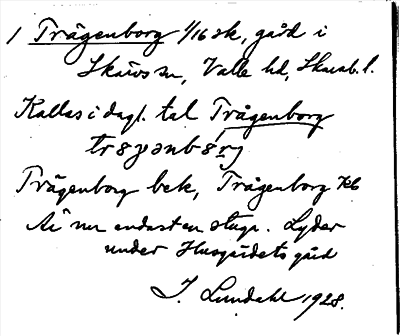 1 Trägenborg 1/16 sk, gård i
Skärvs sn, Valle hd, Skarab. l.
Kallas i dagl. tal Trågenborg
Trägenborg bek, Trågenborg Kb
Är nu endast en stuga. Lyder
under Husgärdets gård
J. Lundahl 1928.